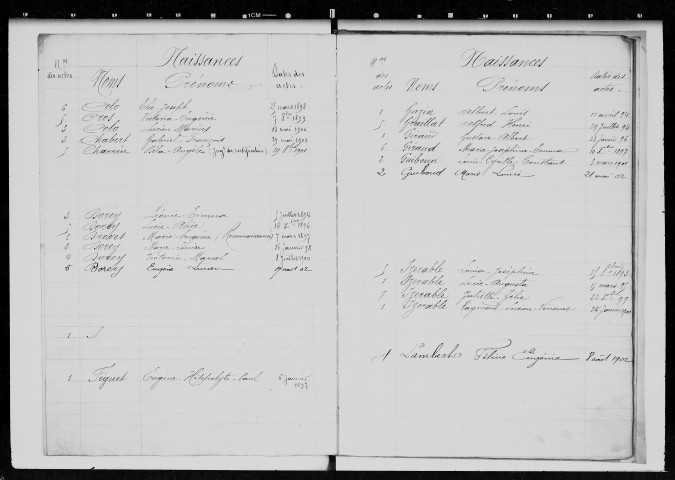 1CM
Naissances
Nos des actes Noms Prénoms Dates des actes
6 Joseph 25 mars 1898
5 Cros Victoria Eugénie 1899
3 Lucien Marius 13 mai 1900
3 Chabert Gabriel François 29 mai 1903
5 Julia Angèle (Jugt de rectification) 1900
3 Borey Léonie 1894
5 Borey 16 Xbre 1896
2 Marie Eugénie (Reconnaissance) 7 mars 1897
Borey Marie Louise Janvier 98
Borey Victorin Marcel 8 juillet 1900
5 Borey Eugène 02
1
1 Figuet Eugène Hippolyte Paul 5 Janvier 1897
Naissances
Nos des actes Noms Prénoms Dates des actes
1 Gazin Albert Louis 11 avril 94
5 Graillat Alfred Henri 29 juillet 94
1 Giraud Gustave Albert Janvier 96
6 Giraud Marie Joséphine Emma 10 Xbre 1897
2 Guiboud Louis Cyrille Constant 3 mars 1901
2 Guiboud Marie Louise 21 mai 02
5 Izerable Louise Joséphine 1893
1 Izerable Lucie Augusta 17 mars 95
7 Izerable Juliette 22 Xbre 97
1 Izerable Raymond Lucien Vincent 24 Janvier 1901
4 Lambert Eugénie 8 août 1902